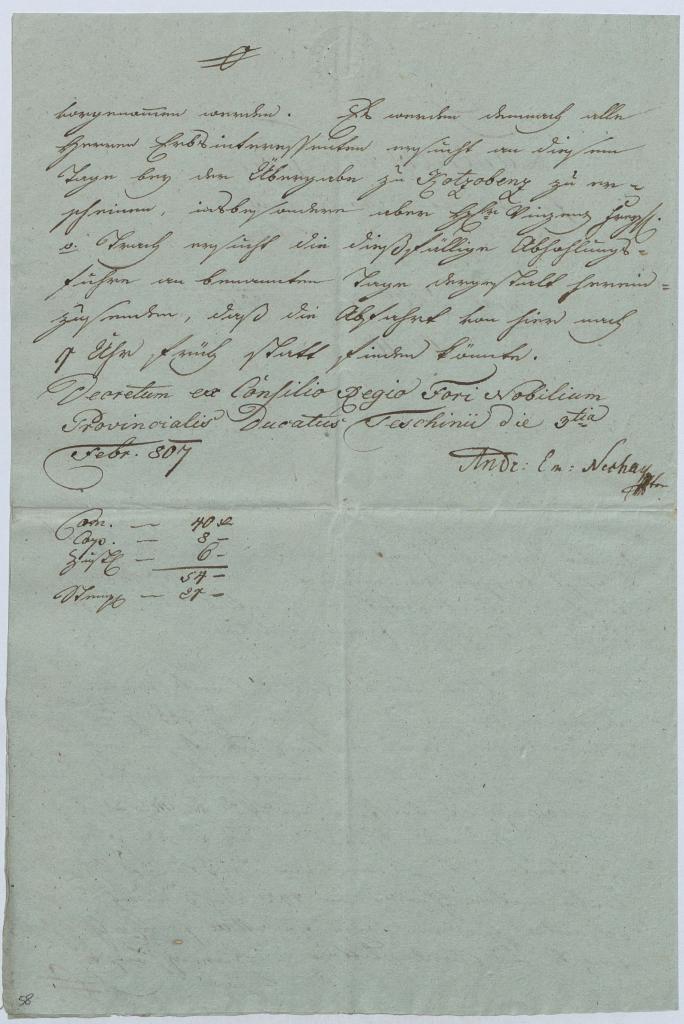 vorgenommen werden. Es werden demnach alle
Herren Erbsinteressenten ersucht an diesem
Tage bey der Übergabe zu Kotzobenz zu er=
scheinen, insbesondere aber H. Vinzenz Freyh.
v. Trach ersucht die dießfällige Abhohlungs=
fuhre an benannten Tage dergestalt herein=
zusenden, daß die Abfahrt von hier nach
Uhr früh statt finden könnte.
Decretum ex Consilio Regio Fori Nobilium
Provincialis Ducatus Teschinii die 3tia
Febr. 807
Andr: Em: Neshay
Com. — 40 x
Cop. — 8 –
Zustl — 6 –
54 –
Stempl —
58